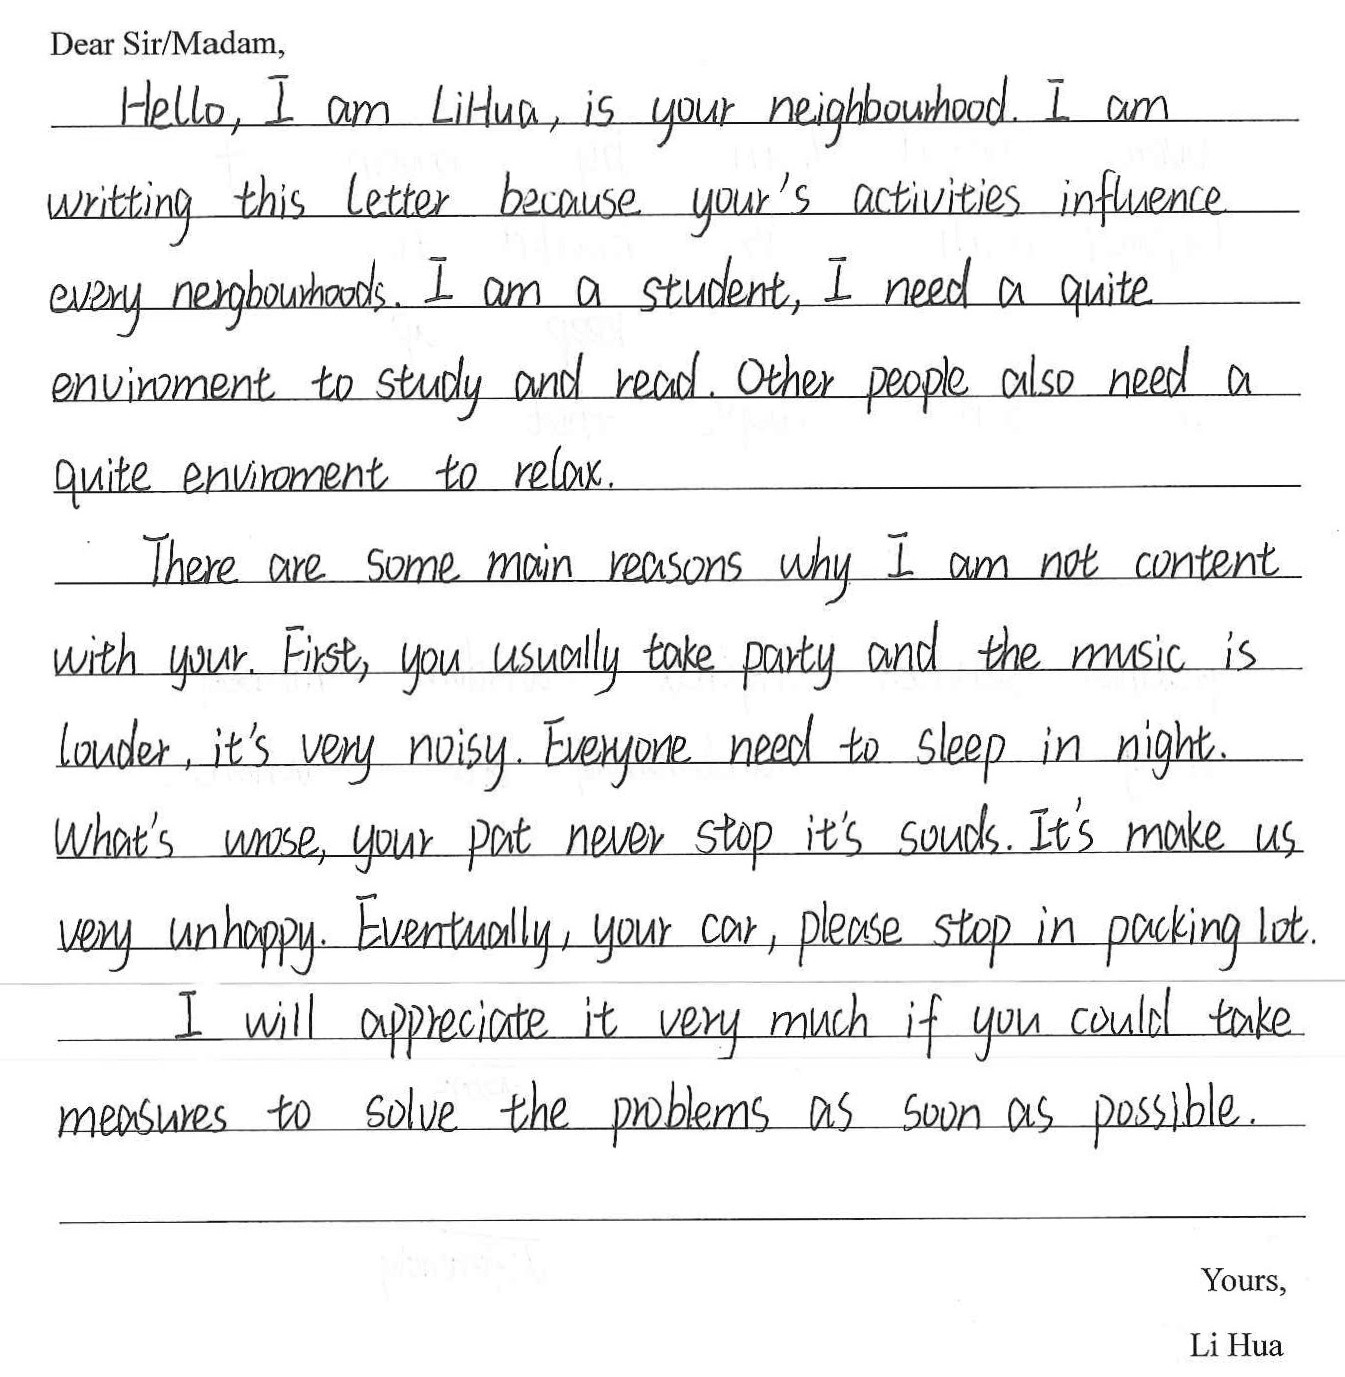 Dear Sir/Madam,
Hello, I am LiHua, is your neighbourhood. I am
writting this letter because your's activities influence
every nergbourhoods. I am a student, I need a quite
enviroment to study and read. Other people also need a
quite enviroment to relax.
There are some main reasons why I am not content
with your. First, you usually take party and the music is
louder, it's very noisy. Everyone need to sleep in night.
What's wrose, your pat never stop it's souds. It's make us
very unhappy. Eventually, your car, please stop in packing lot.
I will appreciate it very much if you could take
measures to solve the problems as soon as possible.
Yours,
Li Hua